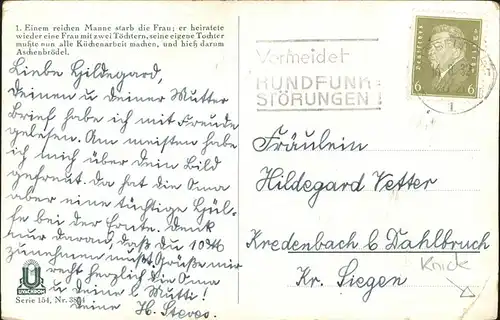 1. Einem reichen Manne starb die Frau; er heiratete
wieder eine Frau mit zwei Töchtern, seine eigene Tochter
mußte nun alle Küchenarbeit machen, und hieß darum
Aschenbrödel.
Liebe Hildegard,
Deinen u Deiner Mutter
Brief habe ich mit Freude
gelesen. Am meisten habe
ich mich über Dein Bild
gefreut. Da hat die Oma
aber eine tüchtige Hül-
fe bei der Ernte. Denk
nur daran, daß Du 10 ℔
zunehmen mußt. Grüße mir
recht herzlich die Oma
u Deine l. Mutti!
Deine H.
UVACHROM
Serie 154, Nr.
Vermeidet
RUNDFUNK-
STÖRUNGEN!
DEUTSCHES REICH
6 6
1
Fräulein
Hildegard Vetter
Kredenbach b Dahlbruch
Kr. Siegen
Knick